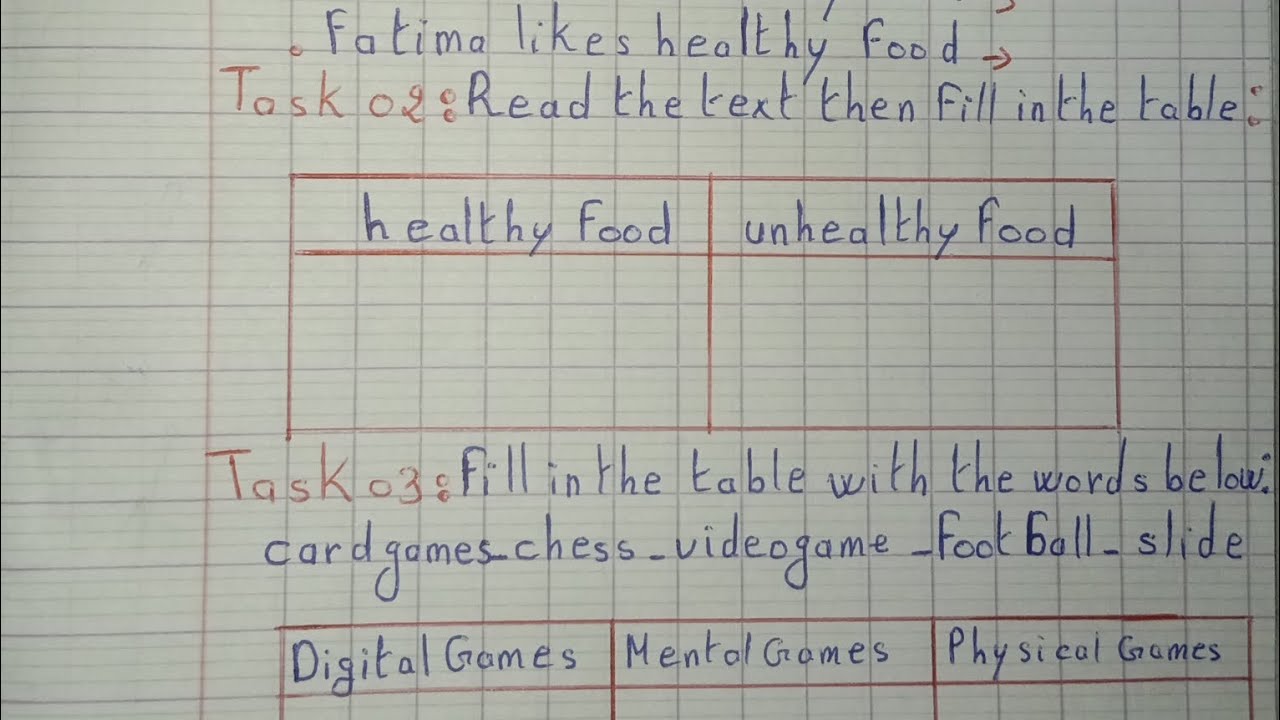 . Fatima likes healthy food →
Task 02: Read the text then fill in the table:
healthy food unhealthy food
Task 03: Fill in the table with the words below:
card games - chess - videogame - football - slide
Digital Games Mental Games Physical Games